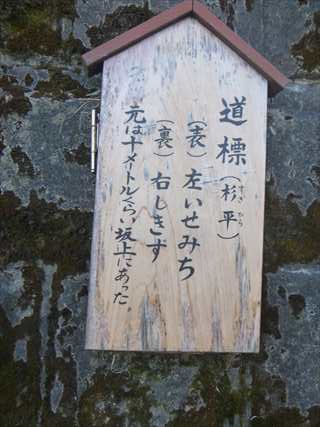 道標（杉平）
すぎ だら
（表）左いせみち
（裏）右しきず
元は十メートルくらい坂上にあった。